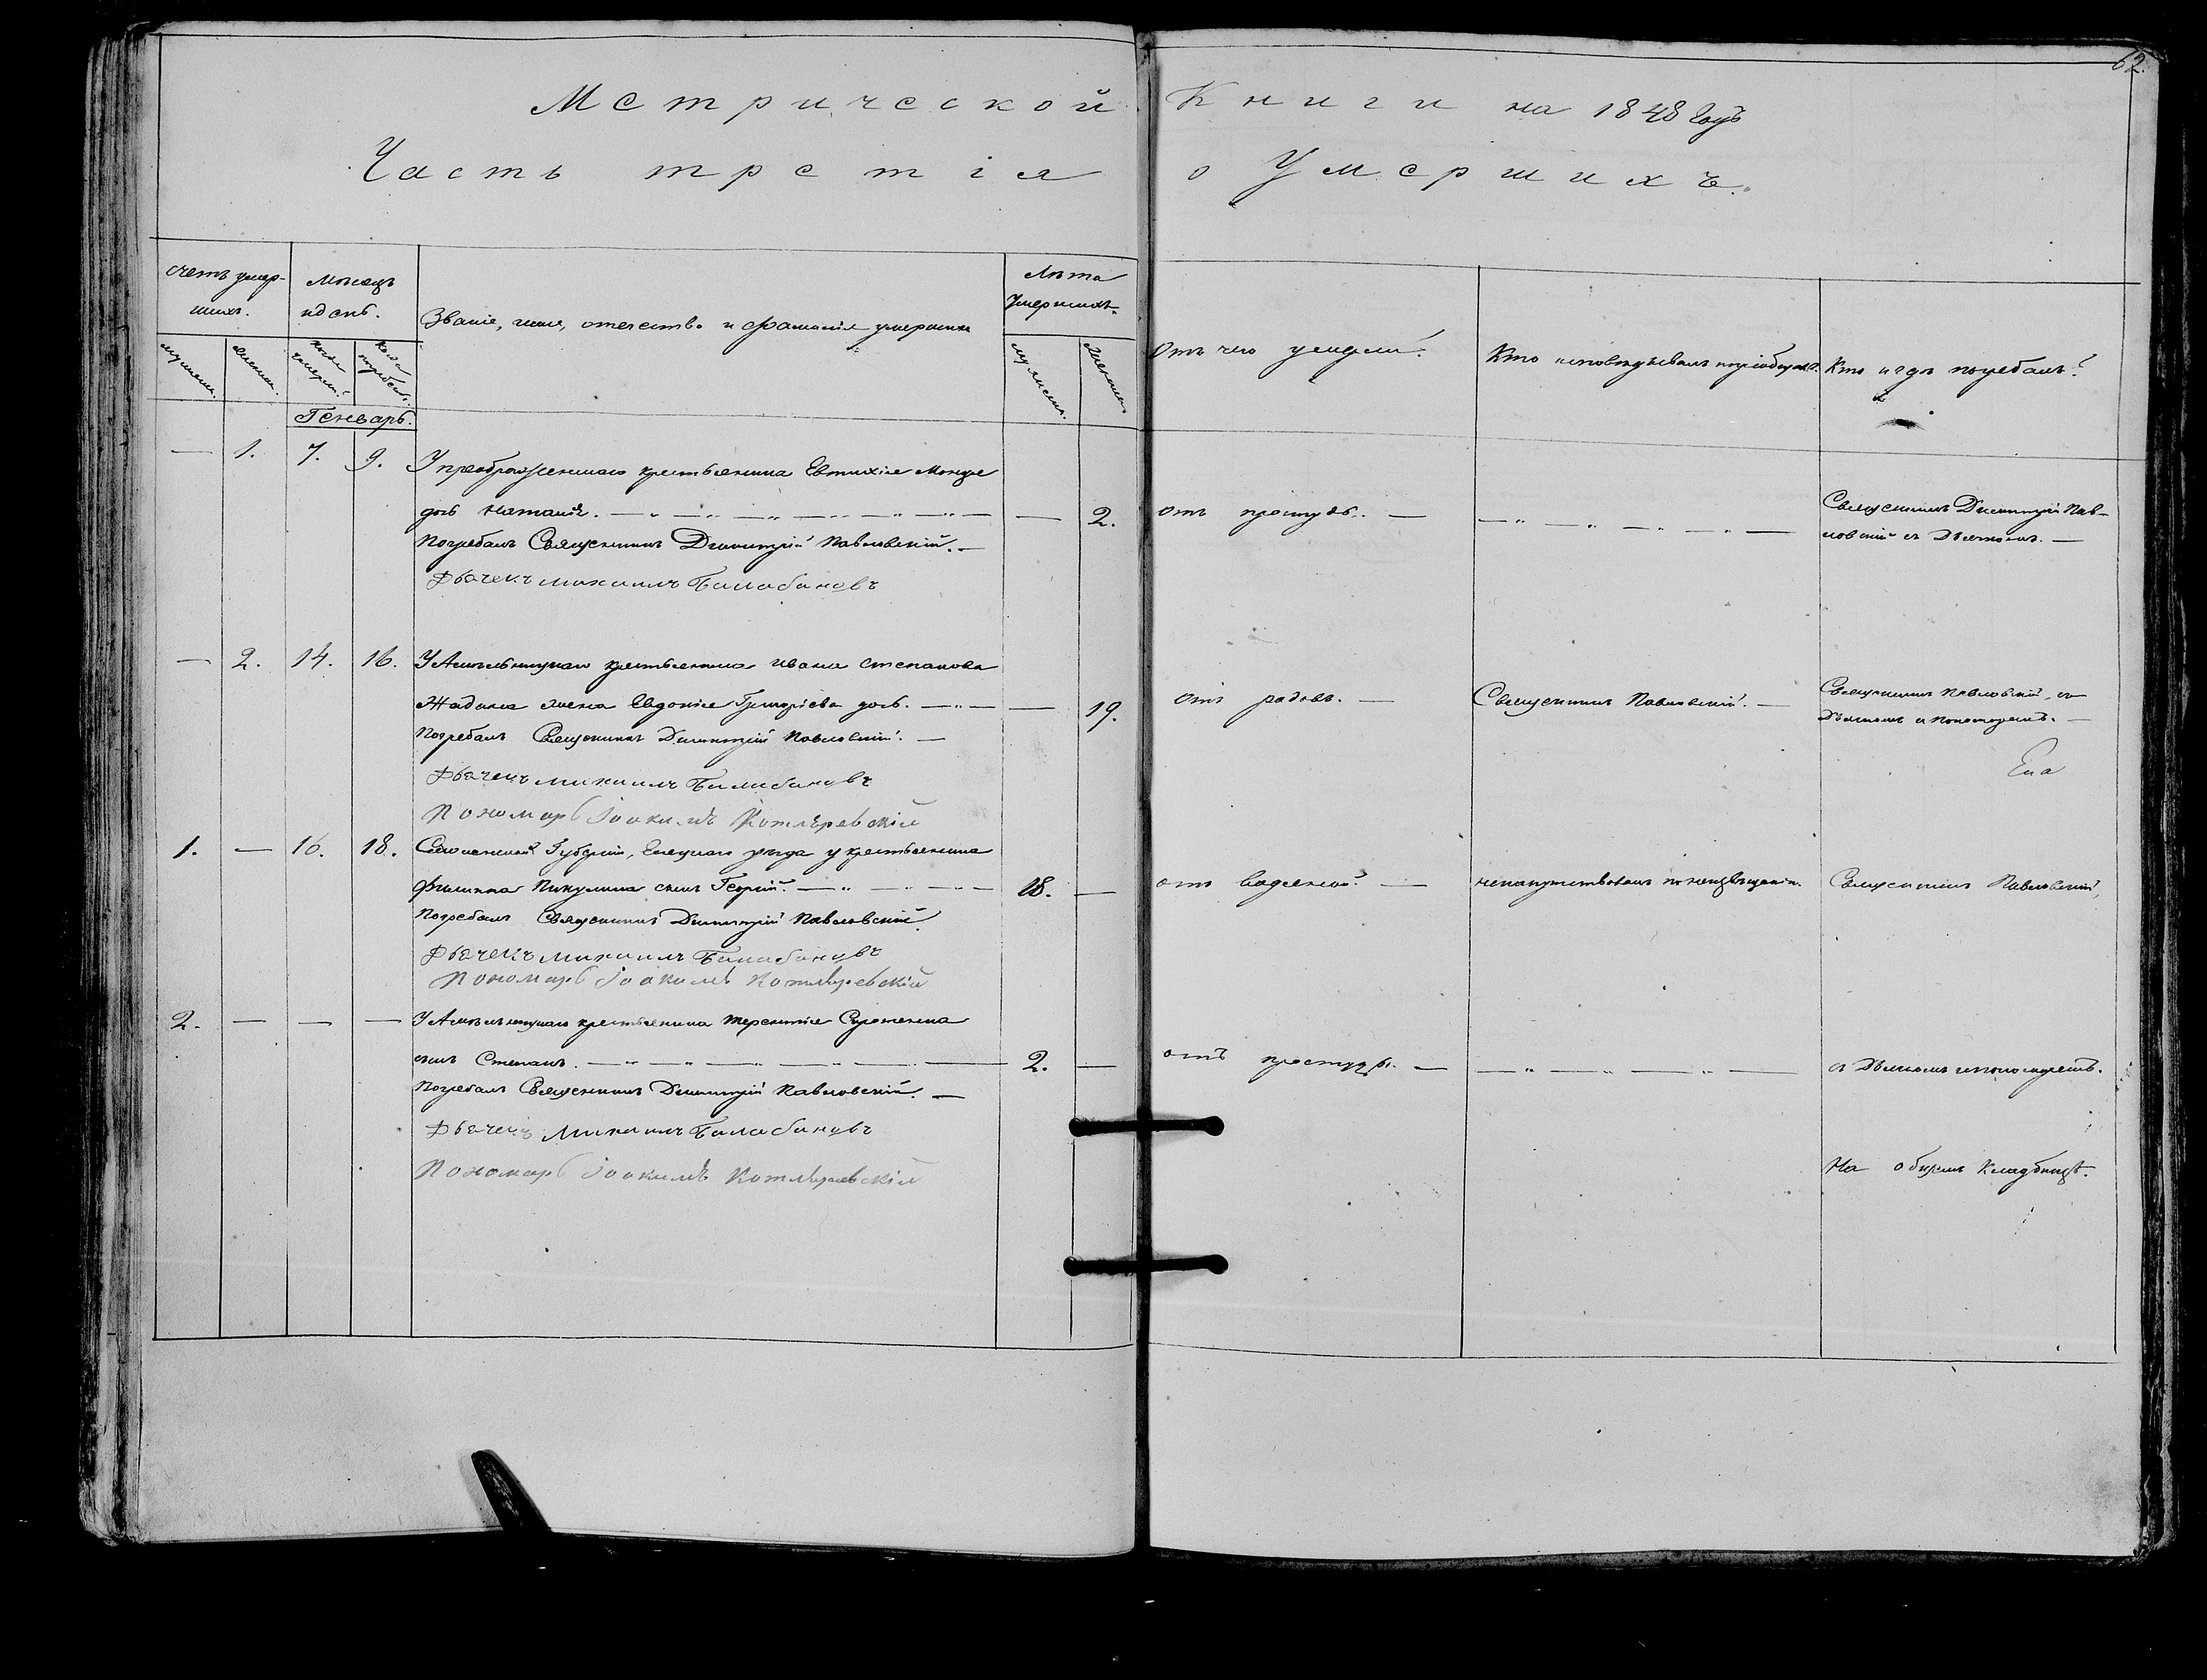 62.
Метрической Книги на 1848 Годъ
Часть третія о Умершихъ.
Счетъ умер-
шихъ.
Мѣсяцъ
и день.
Званіе, имя, отечество и фамилія умершихъ
Лѣта
Умершихъ.
Отъ чего умерли?
Кто исповѣдывалъ и пріобщалъ?
Кто и гдѣ погребалъ?
мужеска.
женска.
когда умеръ?
когда погребенъ.
мужеска.
женска
Генварь.
— 1. 7. 9. У преображенскаго крестьянина Евтихія
дочь Наталія. — 2. отъ простуды. —
Священникъ Димитрій Пав-
ловскій съ Дьячкомъ. —
Погребалъ Священникъ Димитрій Павловскій. —
Дьячекъ михаилъ Балабановъ
— 2. 14. 16. У крестьянина ивана степанова
Жадана жена Евдокія Григоріева дочь. — 19. отъ родовъ. — Священникъ Павловскій. —
Священникъ Павловскій, съ
Дьячкомъ и пономаремъ. —
Погребалъ Священникъ Димитрій Павловскій. —
Дьячекъ михаилъ Балабановъ
Пономарь Іоакимъ Котляревскій
1. — 16. 18. Смоленской Губерніи, уѣзда у крестьянина
филиппа Пикулина сынъ Георгій. — 18. — отъ водяной. — Священникъ Павловскій,
Погребалъ Священникъ Димитрій Павловскій.
Дьячекъ михаилъ Балабановъ
Пономарь Іоакимъ Котляревскій
2. — — — У крестьянина терентія
сынъ Степанъ. — 2. — отъ простуды. — съ Дьячкомъ и пономаремъ.
Погребалъ Священникъ Димитрій Павловскій. —
Дьячекъ Михаилъ Балабановъ
Пономарь Іоакимъ Котляревскій
На общемъ Кладбищѣ.